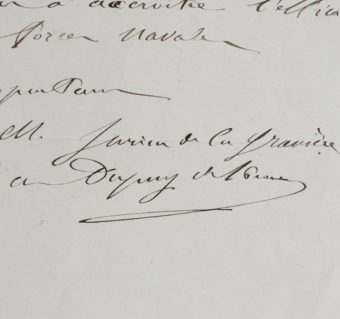 à accroitre l'effica
Forces Navales
M. Jurien de la Gravière
Dupuy de Lôme